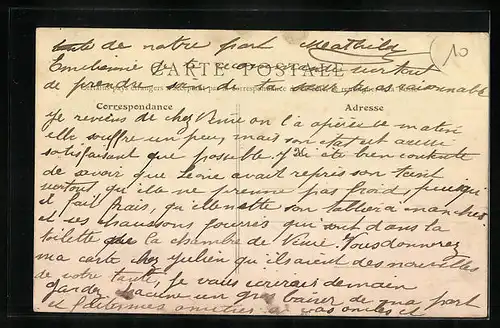 de notre part Mathilde
Emilienne de te recommander surtout
de prendre soin de ta sœur bas raisonnable
CARTE POSTALE
Correspondance
Adresse
10
Je reviens de chez on l'a opérée ce matin
elle souffre un peu, mais son état est aussi
satisfaisant que possible. J'ai été bien contente
de savoir que Léonie avait repris son teint
surtout qu'elle ne prenne pas froid, puisqu'
il fait frais, qu'elle mette son tablier à manches
et ses chaussons fourrés qui sont dans la
toilette de la chambre de Vous donnerez
ma carte chez Julien qu'ils aient des nouvelles
de votre tante, je vous écrirai demain
gardez chacune un gros baiser de ma part
et amitiés à vos oncles et